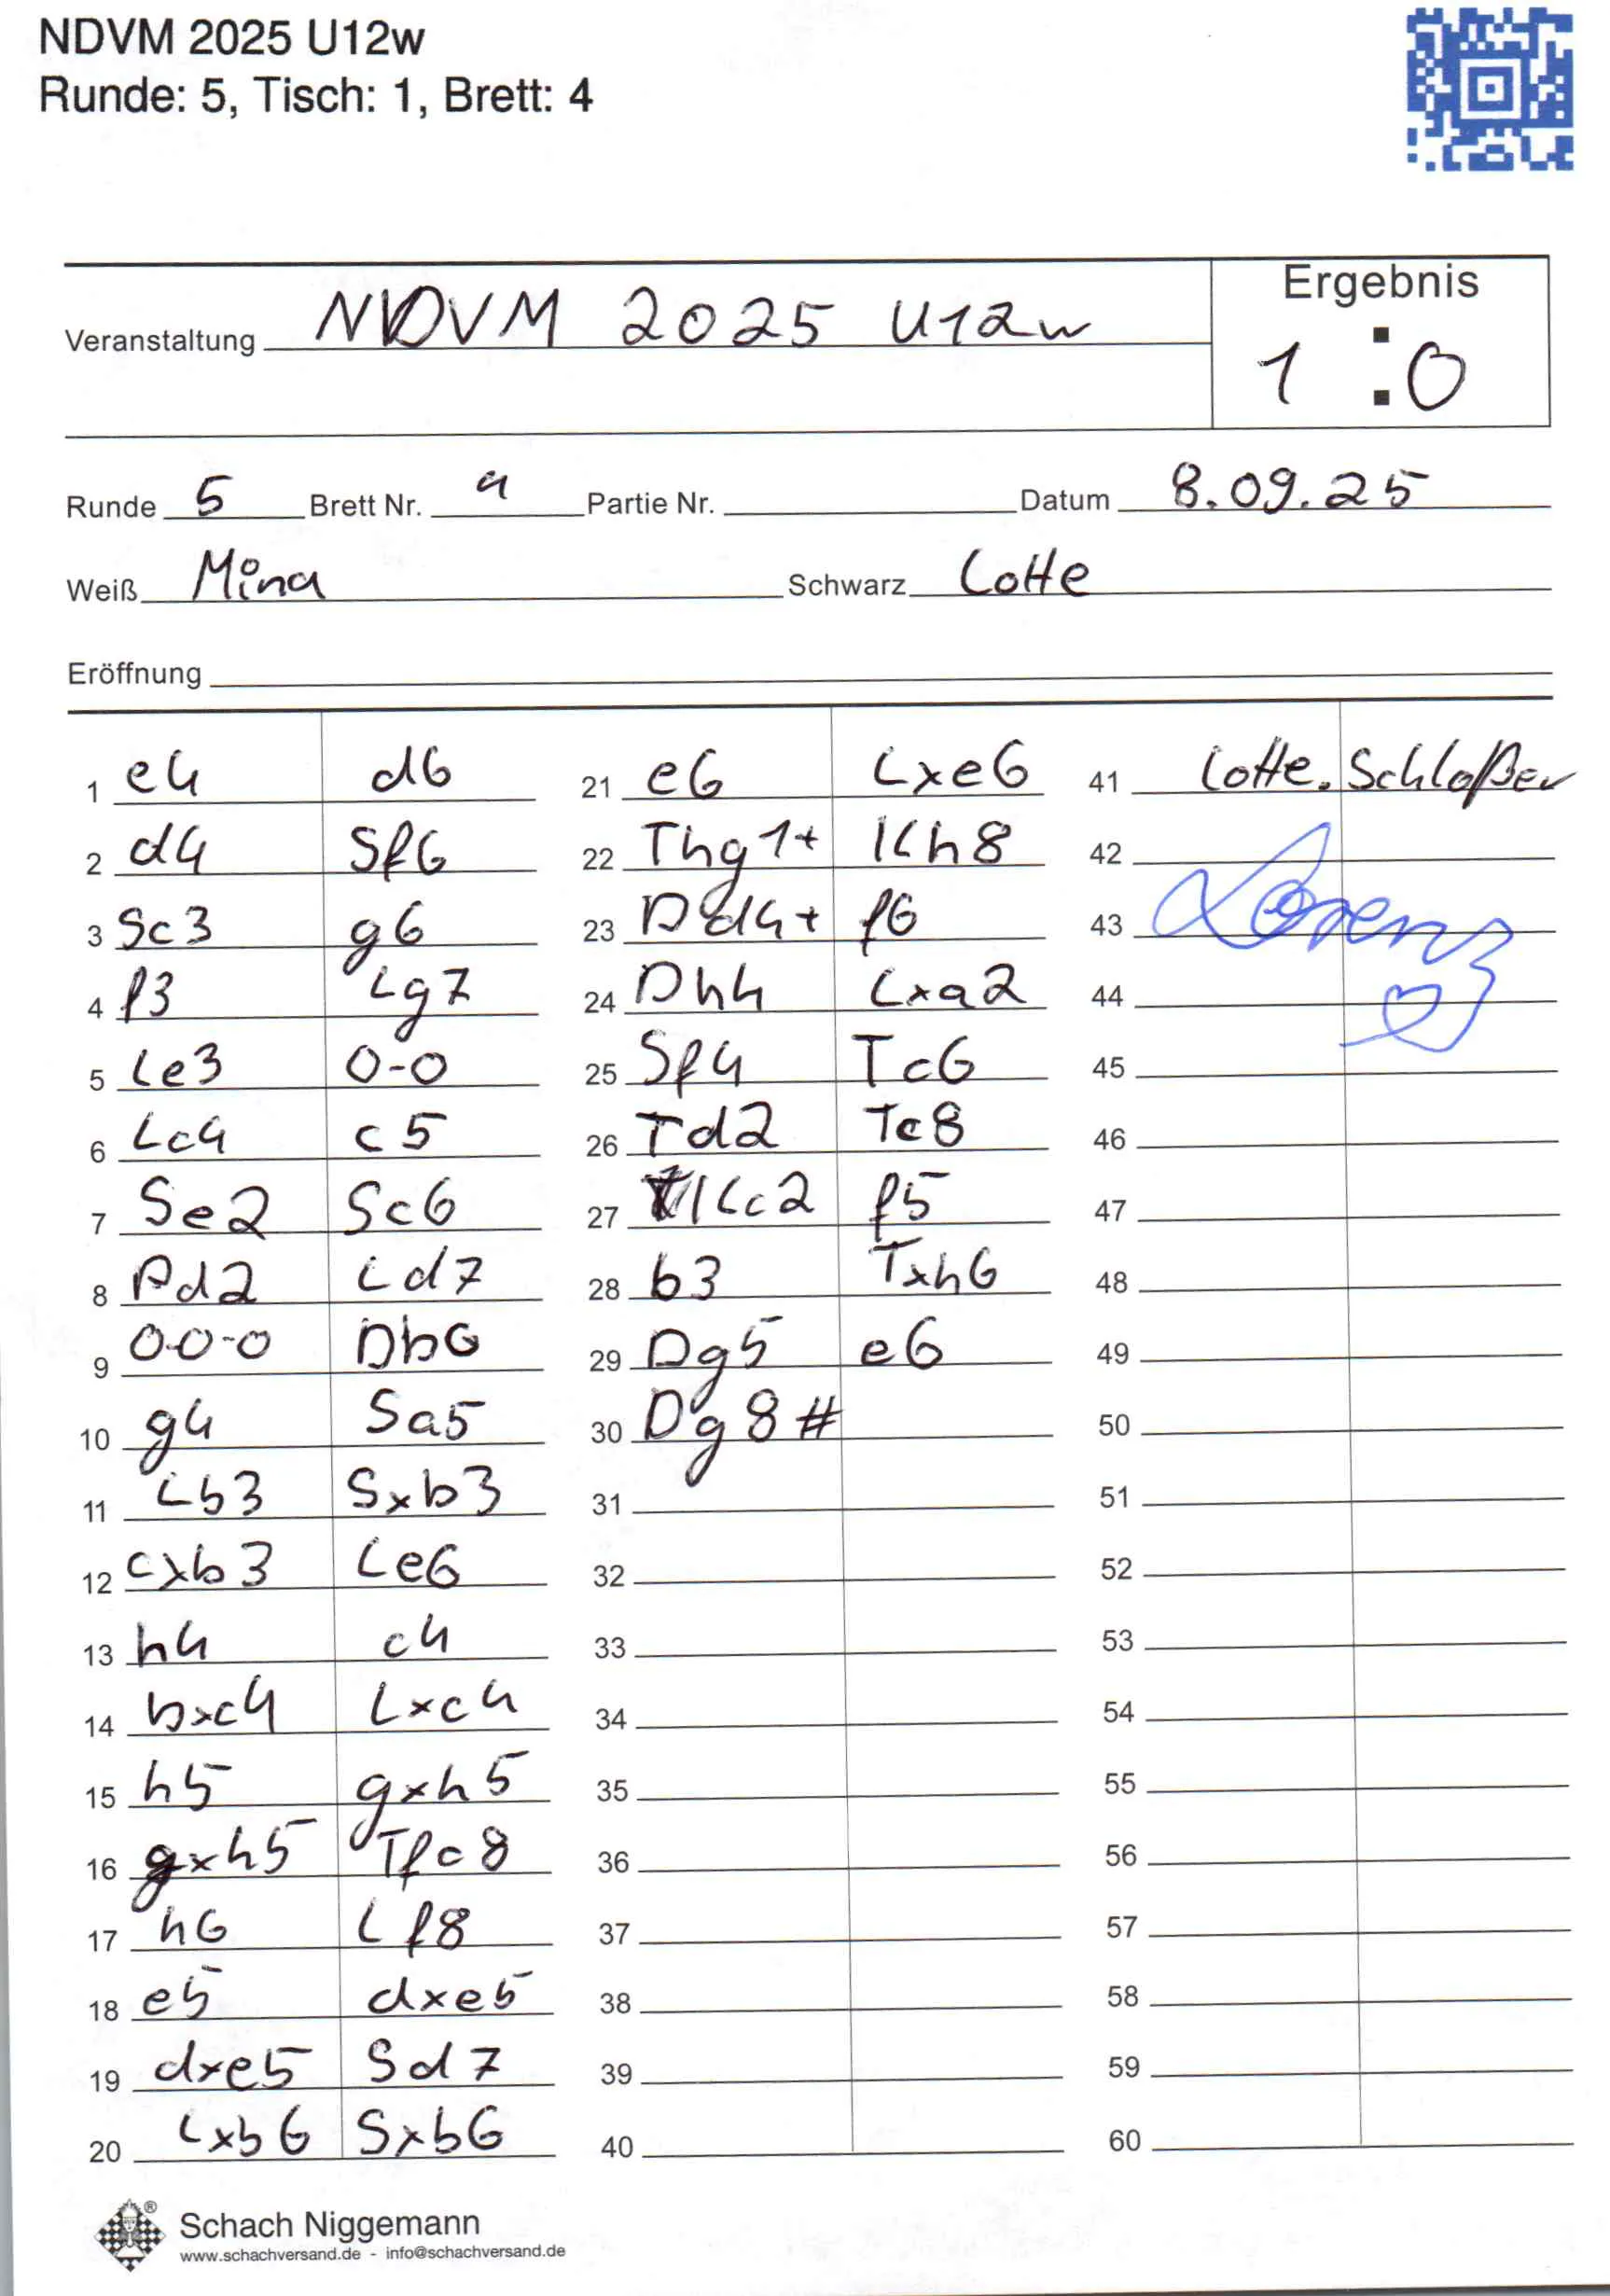 NDVM 2025 U12w
Runde: 5, Tisch: 1, Brett: 4
Ergebnis
Veranstaltung NDVM 2025 U12w
1 : 0
Runde 5 Brett Nr. 4 Partie Nr. Datum 8.09.25
Weiß Mina Schwarz Lotte
Eröffnung
1 e4 d6
2 d4 Sf6
3 Sc3 g6
4 f3 Lg7
5 Le3 0-0
6 Lc4 c5
7 Se2 Sc6
8 Dd2 Ld7
9 0-0-0 Db6
10 g4 Sa5
11 Lb3 Sxb3
12 cxb3 Le6
13 h4 c4
14 bxc4 Lxc4
15 h5 gxh5
16 gxh5 Tfc8
17 h6 Lf8
18 e5 dxe5
19 dxe5 Sd7
20 Lxb6 Sxb6
21 e6 Lxe6
22 Thg1+ Kh8
23 Dd4+ f6
24 Dh4 Lxa2
25 Sf4 Tc6
26 Td2 Tc8
27 Kc2 f5
28 b3 Txh6
29 Dg5 e6
30 Dg8#
31
32
33
34
35
36
37
38
39
40
41 Lotte. Schloßer
42
43 Lorenz
44
45
46
47
48
49
50
51
52
53
54
55
56
57
58
59
60
Schach Niggemann
www.schachversand.de - info@schachversand.de